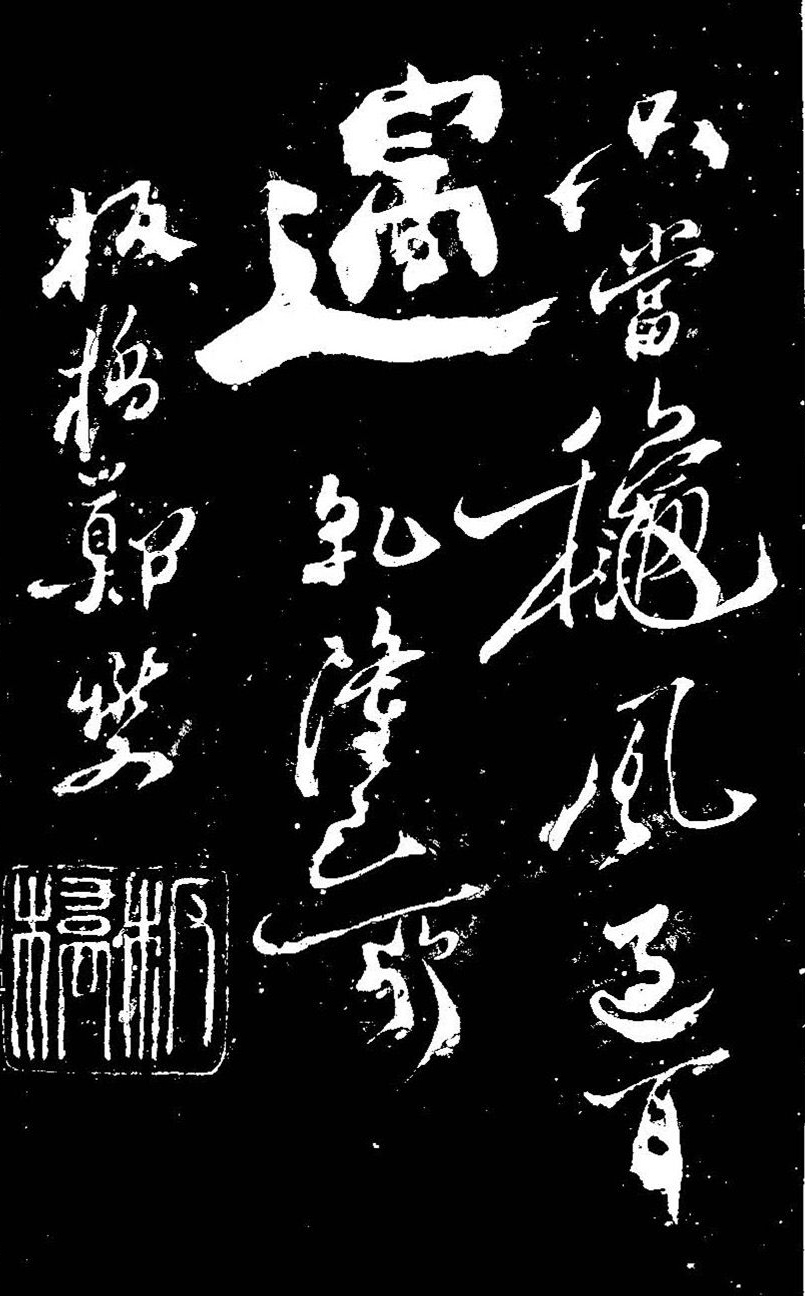 只當龝風過耳
邊 乾隆己卯
板橋鄭燮
板橋